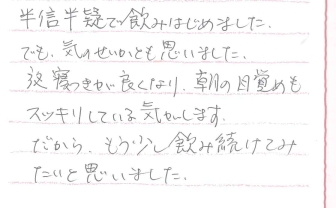 半信半疑で飲みはじめました。
でも、気のせいかとも思いました。
夜寝つきが良くなり、朝の目覚めも
スッキリしている気がします。
だから、もう少し飲み続けてみ
たいと思いました。